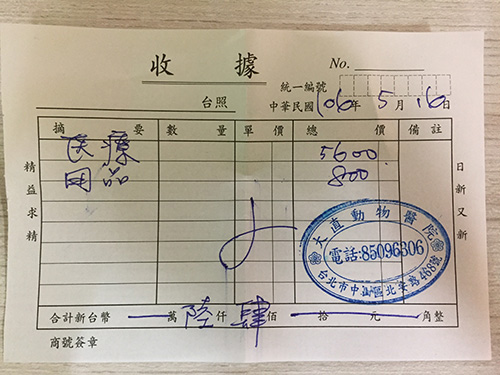 收據 No.
統一編號
台照 中華民國 106 年 5 月 16 日
摘要 數量 單價 總價 備註
医療 5600
用品 800
精益求精
日新又新
大直動物醫院
電話:85096306
台北市中山區北安路468號
合計新台幣 萬 陸 仟 肆 佰 拾 元 角整
商號簽章